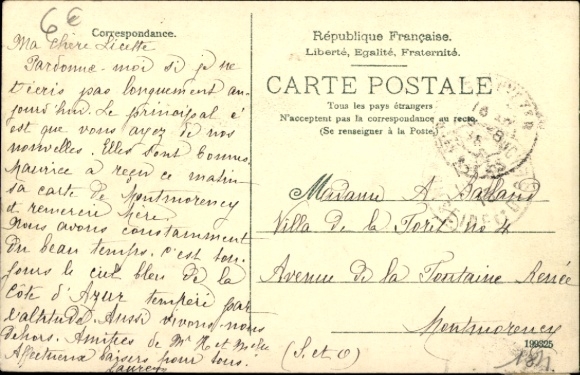 6€
Correspondance.
Ma chère Licette
Pardonne-moi si je ne
t'écris pas longuement au-
jourd'hui. Le principal c'
est que vous ayez de nos
nouvelles. Elles sont bonnes.
Maurice a reçu ce matin
sa carte de Montmorency
et remercie Mère.
Nous avons constamment
du beau temps. C'est tou-
jours le ciel bleu de la
Côte d'Azur tempéré par
l'altitude. Aussi vivons-nous
dehors. Amitiés de Mr H et Me
Affectueux baisers pour tous.
République Française.
Liberté, Egalité, Fraternité.
CARTE POSTALE
Tous les pays étrangers
N'acceptent pas la correspondance au recto.
(Se renseigner à la Poste.)
Madame A.
Villa de la Foret no 4
Avenue de la Fontaine
Montmorency
(S. et O)
199325
184